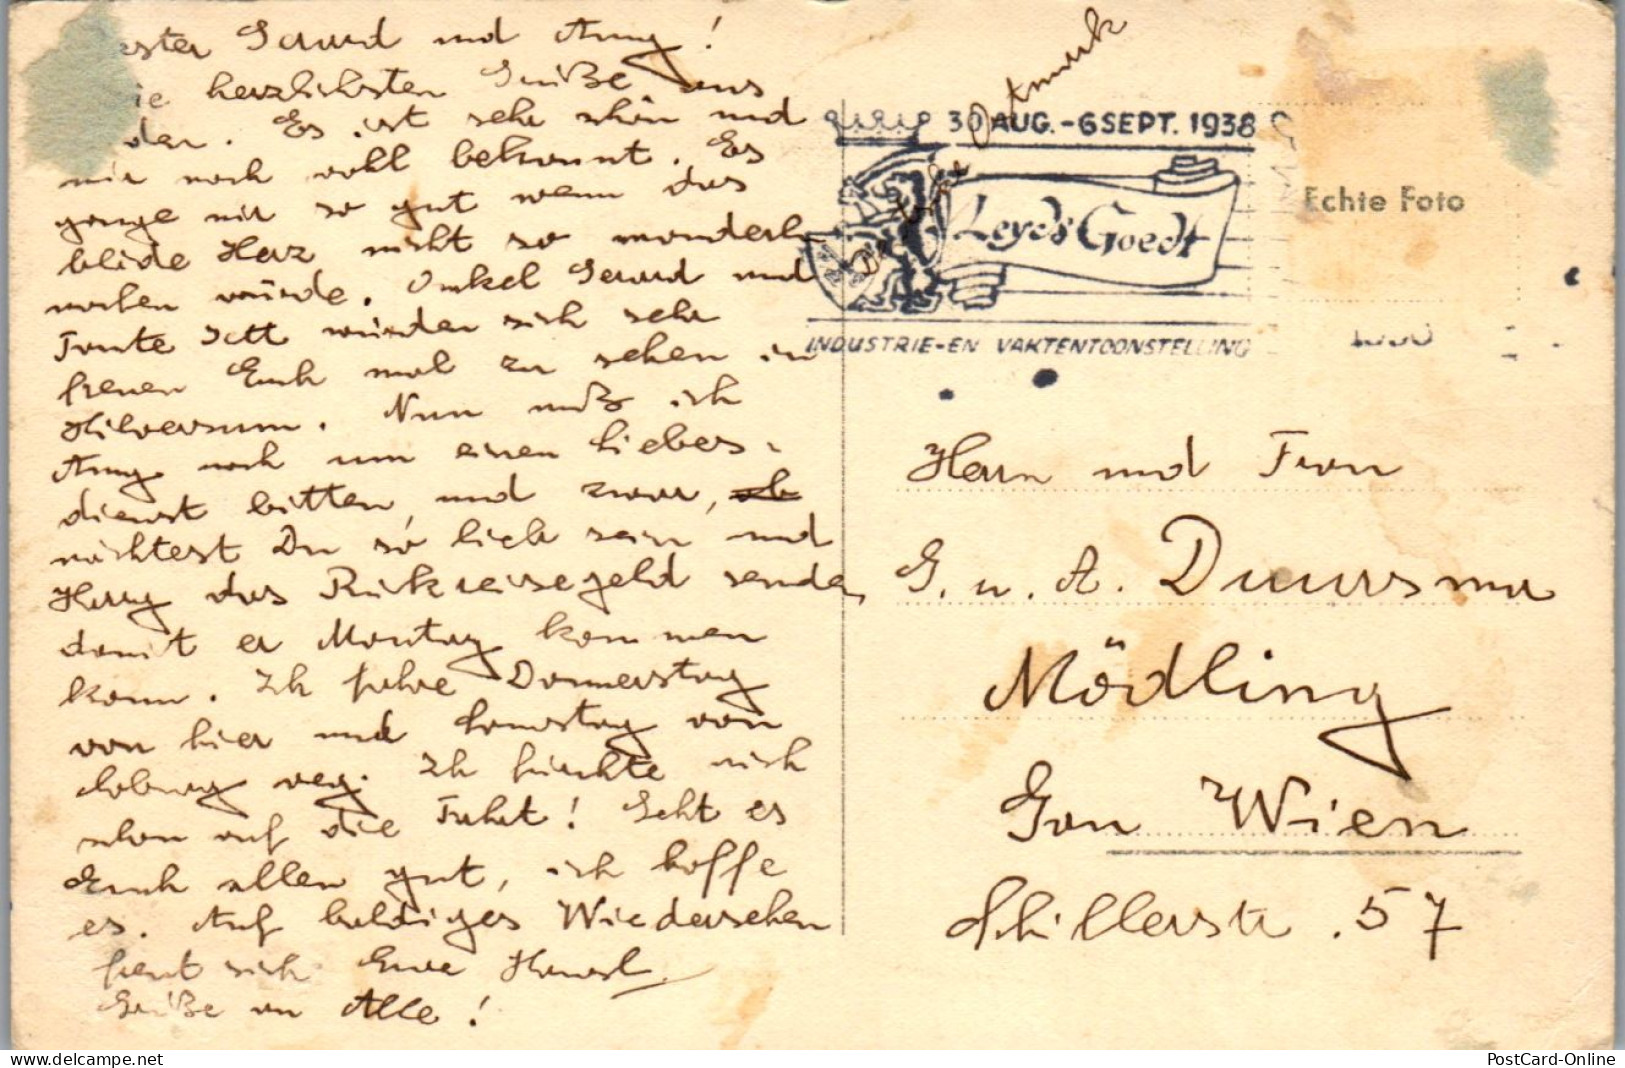 Gerard und Anny!
herzlichsten Grüße aus
Es ist sehr schön und
mir noch wohl bekannt. Es
ginge mir so gut wenn das
blöde Herz nicht so
machen würde. Onkel Gerard und
Tante Jett würden sich sehr
freuen Euch mal zu sehen in
Hilversum. Nun muß ich
Anny noch um einen Liebes-
dienst bitten, und zwar,
möchtest Du so lieb sein und
Harry das Rückreisegeld senden,
damit er Montag kommen
kann. Ich fahre Donnerstag
von hier und Samstag von
weg. Ich fürchte mich
schon auf die Fahrt! Geht es
Euch allen gut, ich hoffe
es. Auf baldiges Wiedersehen
freut sich Eure Hansl
Grüße an Alle!
30 AUG. - 6 SEPT. 1938
Leyds Goedt
INDUSTRIE- EN VAKTENTOONSTELLING
Echte Foto
Herrn und Frau
G. u. A. Duursma
Mödling
Gau Wien
Schillerstr. 57
PostCard-Online
delcampe.net